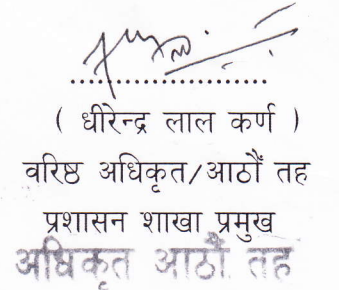 ( धीरेन्द्र लाल कर्ण )
वरिष्ठ अधिकृत/आठौँ तह
प्रशासन शाखा प्रमुख
अधिकृत आठौँ तह